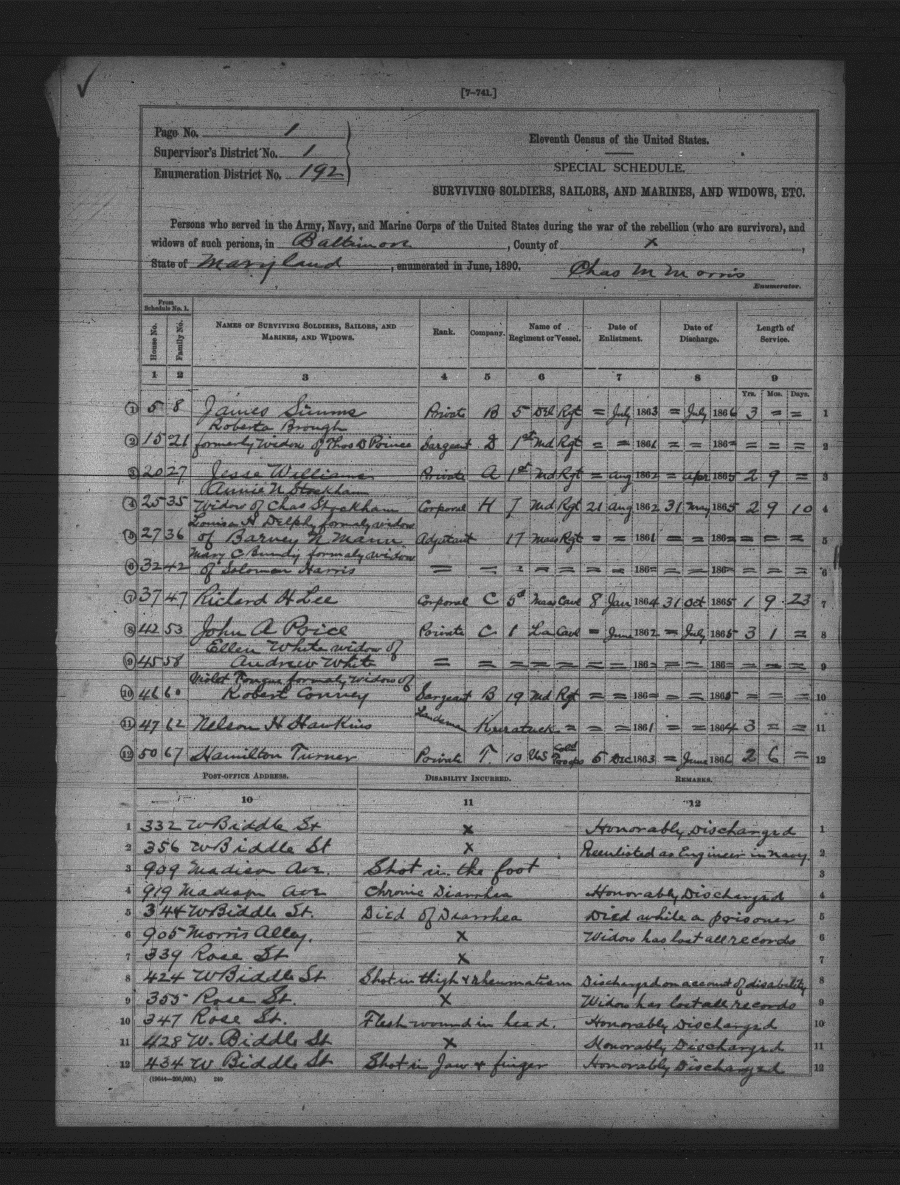 ✓
[7-741.]
Page No. 1
Supervisor's District No. 1
Enumeration District No. 192
Eleventh Census of the United States.
SPECIAL SCHEDULE.
SURVIVING SOLDIERS, SAILORS, AND MARINES, AND WIDOWS, ETC.
Persons who served in the Army, Navy, and Marine Corps of the United States during the war of the rebellion (who are survivors), and
widows of such persons, in Baltimore, County of x,
State of Maryland, enumerated in June, 1890. Chas M Morris
Enumerator.
From Schedule No. 1.
House No. Family No. NAMES OF SURVIVING SOLDIERS, SAILORS, AND MARINES, AND WIDOWS. Rank. Company. Name of Regiment or Vessel. Date of Enlistment. Date of Discharge. Length of Service.
1 2 3 4 5 6 7 8 9
Yrs. Mos. Days.
1 5 8 James Simms Private B 5 Rgt = July 1863 = July 1866 3 = = 1
Roberta Brough
2 15 21 formerly Widow of Thos D Prince Sargent D 1st Md Rgt = = 1861 = = 186= = = = 2
3 20 27 Jesse Williams Private A 1st Md Rgt = Aug 1862 = Apr 1865 2 9 = 3
Annie N Stockham
4 25 35 Widow of Chas Stockham Corporal H 7 Md Rgt 21 Aug 1862 31 May 1865 2 9 10 4
Louisa H Delphy formaly widow
5 27 36 of Barney N Mann Adjutant 17 Mass Rgt = = 1861 = = 186= = = = 5
Mary C Bundy formaly widow
6 32 42 of Soloman Harris = = = = = = = 186= = = 186= = = = 6
7 37 47 Richard H Lee Corporal C 5th Mass Cavl 8 Jan 1864 31 Oct 1865 1 9 23 7
8 42 53 John A Price Private C 1 La Cavl = June 1862 = July 1865 3 1 = 8
Ellen White widow of
9 45 58 Andrew White = = = = = = = 186= = = 186= = = = 9
Violet formaly widow of
10 46 60 Robert Conney Sargent B 19 Md Rgt = = 186= = = 1865 = = = 10
11 47 62 Nelson H Hawkins Landsman = = = 1861 = = 1864 3 = = 11
12 50 67 Hamilton Turner Private 10 US Cold Troops 5 Dec 1863 = June 1866 2 6 = 12
POST-OFFICE ADDRESS. DISABILITY INCURRED. REMARKS.
10 11 12
1 332 W Biddle St x Honorably Discharged 1
2 356 W Biddle St x Reenlisted as Engineer in Navy 2
3 909 Madison Ave. Shot in the foot 3
4 919 Madison Ave Chronic Diarrhea Honorably Discharged 4
5 344 W Biddle St. Died of Diarrhea Died while a prisoner 5
6 905 Morris Alley. x Widow has lost all records 6
7 339 Rose St x 7
8 424 W Biddle St Shot in thigh & rheumatism Discharged on account of disability 8
9 355 Rose St. x Widow has lost all records 9
10 347 Rose St. Flesh wound in head. Honorably Discharged 10
11 428 W. Biddle St x Honorably Discharged 11
12 434 W Biddle St Shot in Jaw & finger Honorably Discharged 12